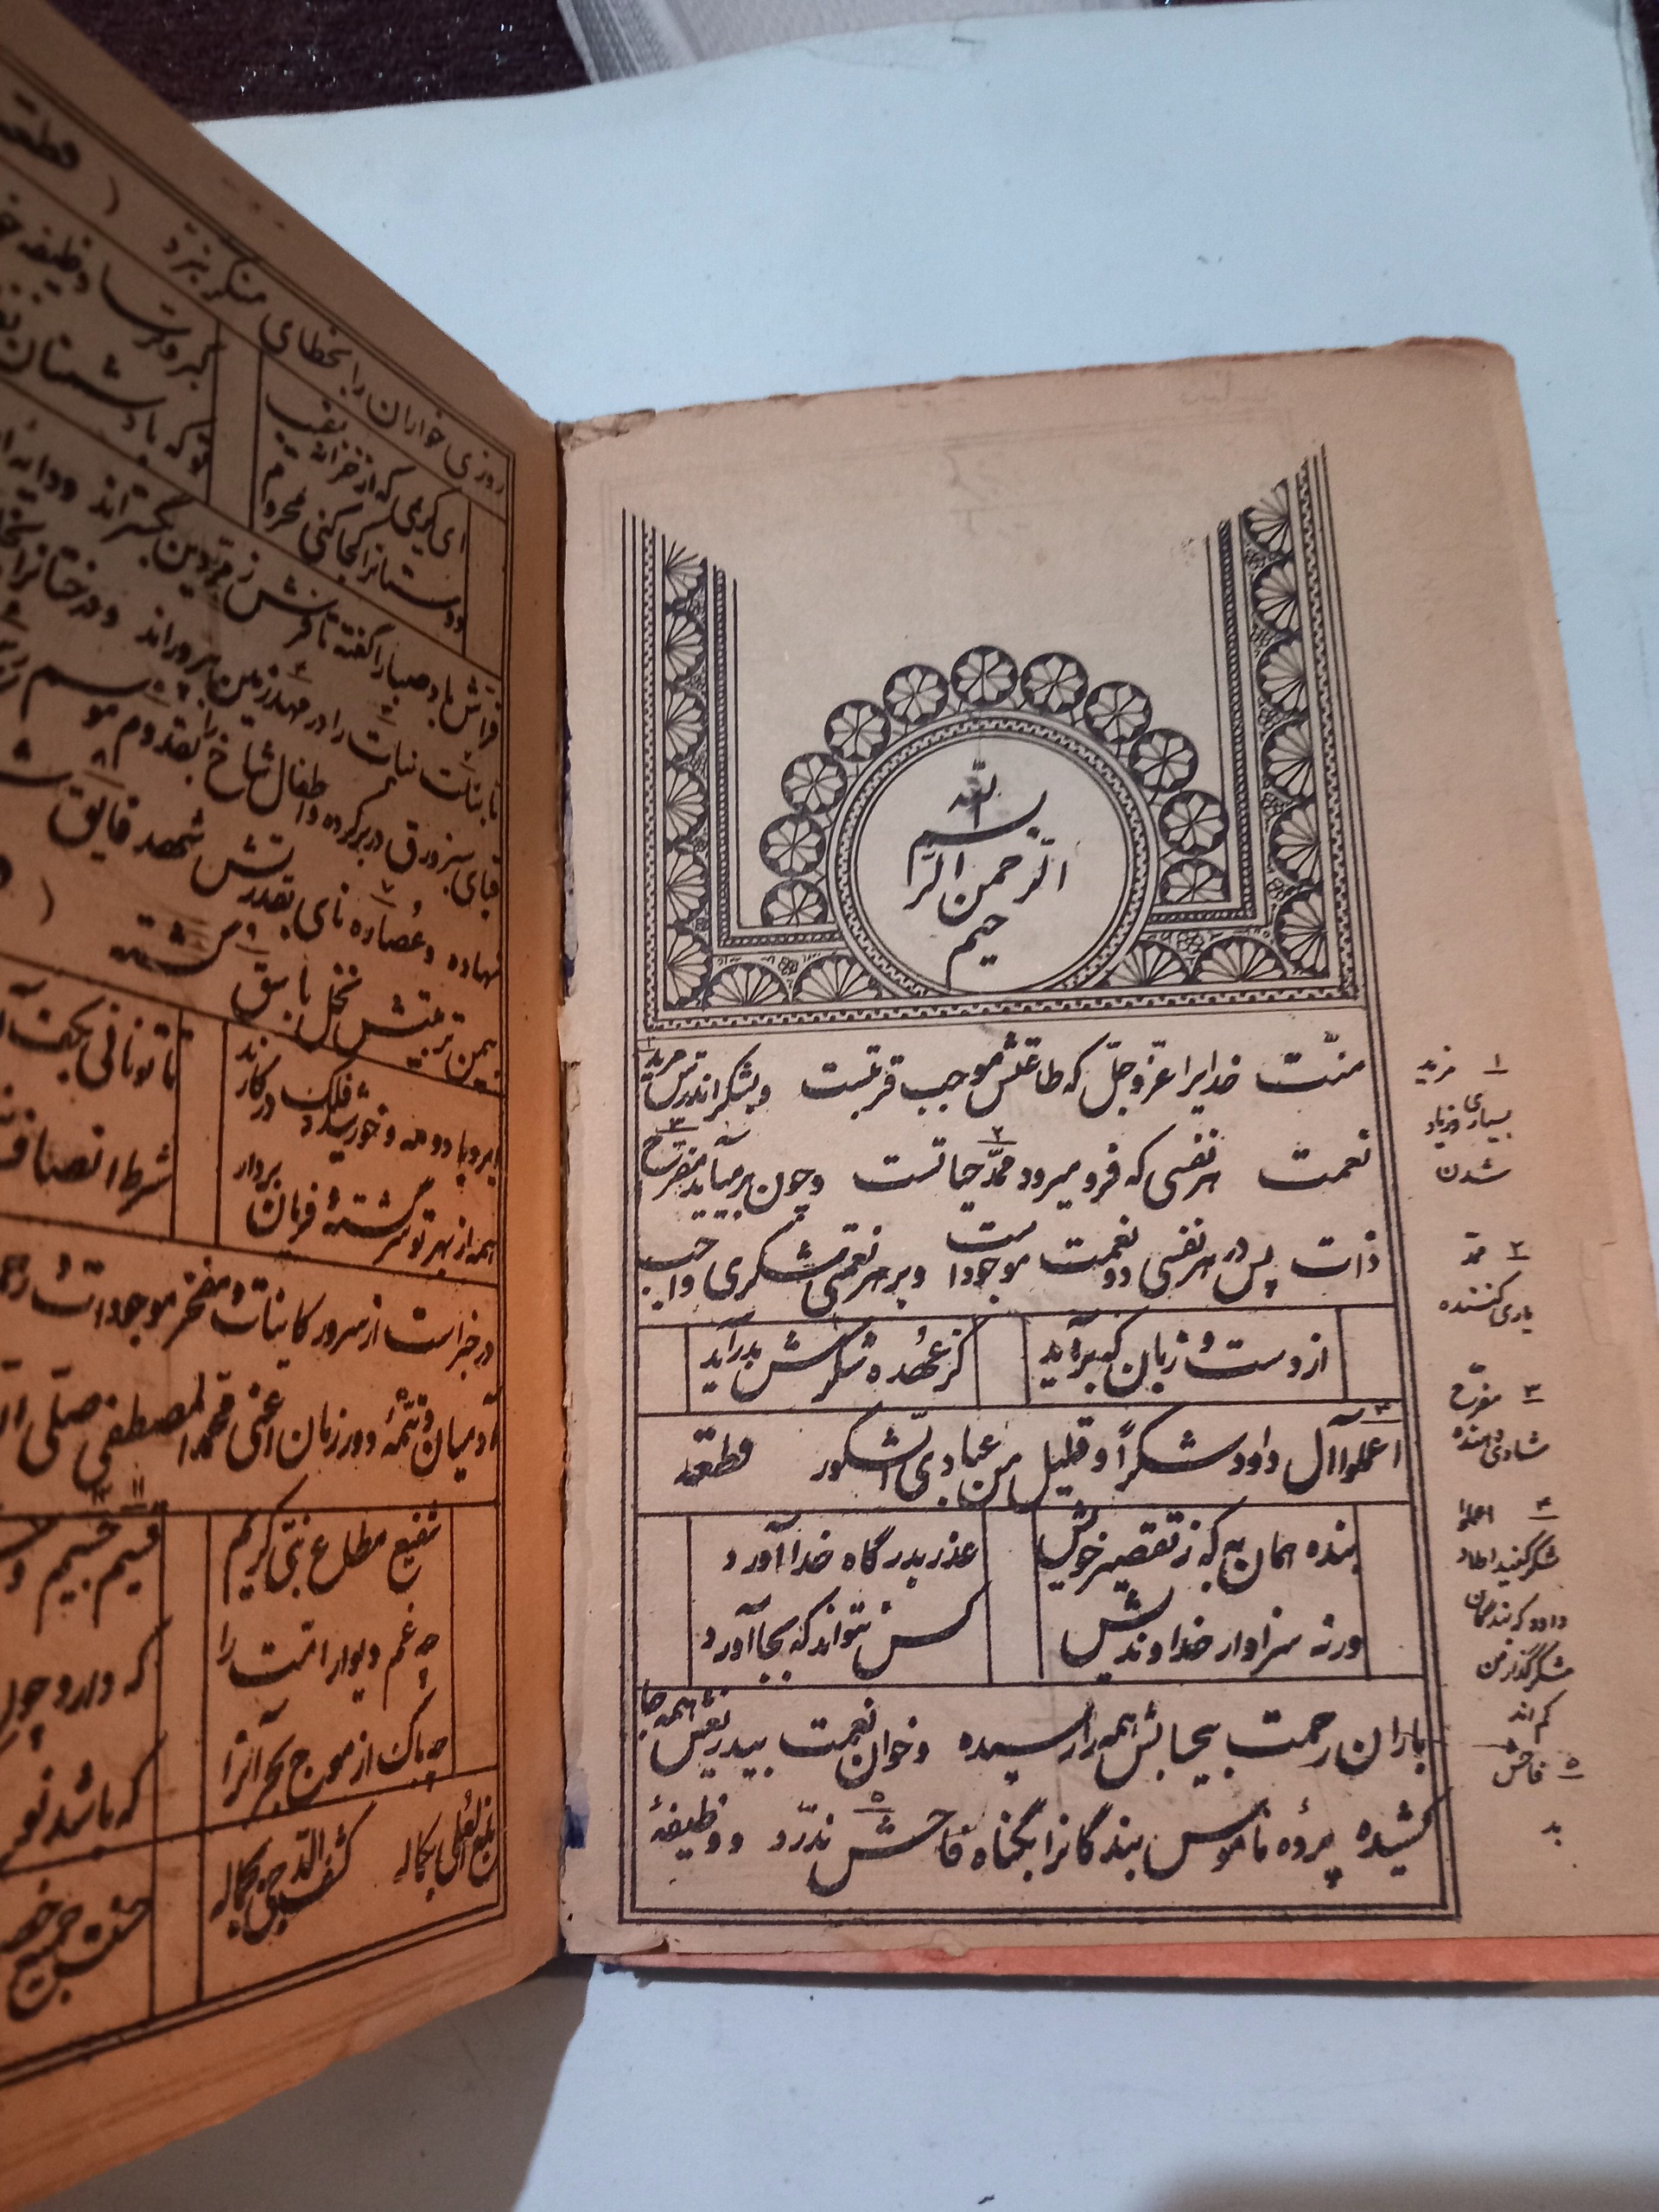 بسم الله
الرحمن الر
حیم
منّت خدایرا عزّوجلّ که طاعتش موجب قربتست و بشکر اندرش مزید
نعمت هر نفسی که فرو میرود ممدّ حیاتست و چون بر میآید مفرّح
ذات پس در هر نفسی دو نعمت موجود است و بر هر نعمتی شکری واجب
از دست و زبان که برآید کز عهده شکرش بدر آید
اعملوا آل داود شکراً و قلیل من عبادی الشّکور قطعه
بنده همان به که ز تقصیر خویش عذر بدرگاه خدا آورد
ورنه سزاوار خداوندیش کس نتواند که بجا آورد
باران رحمت بیحسابش همه را رسیده و خوان نعمت بیدریغش همه جا
کشیده پرده ناموس بندگانرا بگناه فاحش ندرّد و وظیفهٔ
۱ مزید
بسیاری و زیاد
شدن
۲ ممدّ
یاری کننده
۳ مفرّح
شادی دهنده
۴ اعملوا
شکر کنید اولاد
داود که بندگان
شکرگذار من
کم‌اند
۵ فاحش
بد
روزی خواران را بخطای منکر نبرد قطعه
ای کریمی که از خزانه غیب گبر و ترسا وظیفه
دوستانرا کجا کنی محروم تو که با دشمنان
فرّاش باد صبا را گفته تا فرش زمرّدین بگستراند و دایه
تا بنات نبات را در مهد زمین بپروراند و درختانرا
قبای سبز ورق در بر کرده و اطفال شاخ را بقدوم موسم
نهاده و عصاره نای بقدرتش شهد فایق
بیمن تربیتش نخل باسق گشته
ابر و باد و مه و خورشید و فلک در کارند تا تو نانی بکف
همه از بهر تو سرگشتهٔ و فرمان بردار شرط انصاف
در خبر است از سرور کاینات و مفخر موجودات
آدمیان و تتمّهٔ دور زمان اعنی محمد المصطفی صلّی
شفیع مطاع نبیّ کریم قسیم جسیم
چه غم دیوار امّت را که دارد چون
چه باک از موج بحر آنرا که باشد نوح
بلغ العلی بکماله کشف الدّجی بجماله حسنت جمیع